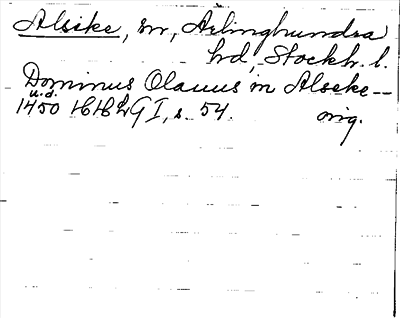 Alsike, sn, Ärlinghundra
hd, Stockh. l.
Dominus Olauus in Alseke --
u.d.
1450 HH 2 G I, s. 54. orig.